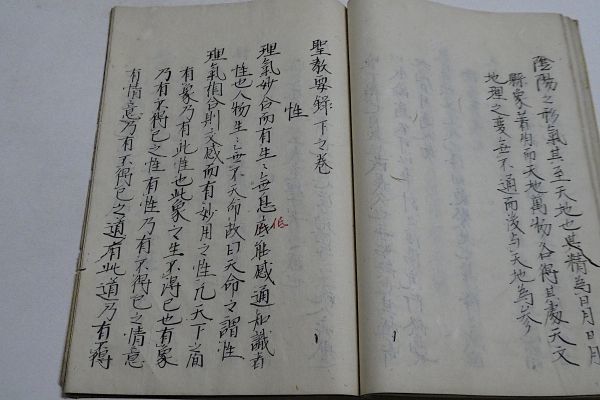 陰陽之形氣其至天地也其精為日月日月
縣象著明而天地萬物各得其處天文
地理之変無不通而後与天地為參
聖教要録下之巻
性
理氣妙合而有生〻無息底能感通知識者
低
性也人物生〻無不天命故曰天命之謂性
理氣相合則交感而有妙用之性凡天下
有象乃有此性也此象之生不得已也有象
乃有不得已之性有性乃有不得已之情意
有情意乃有不得已之道有此道乃有不得